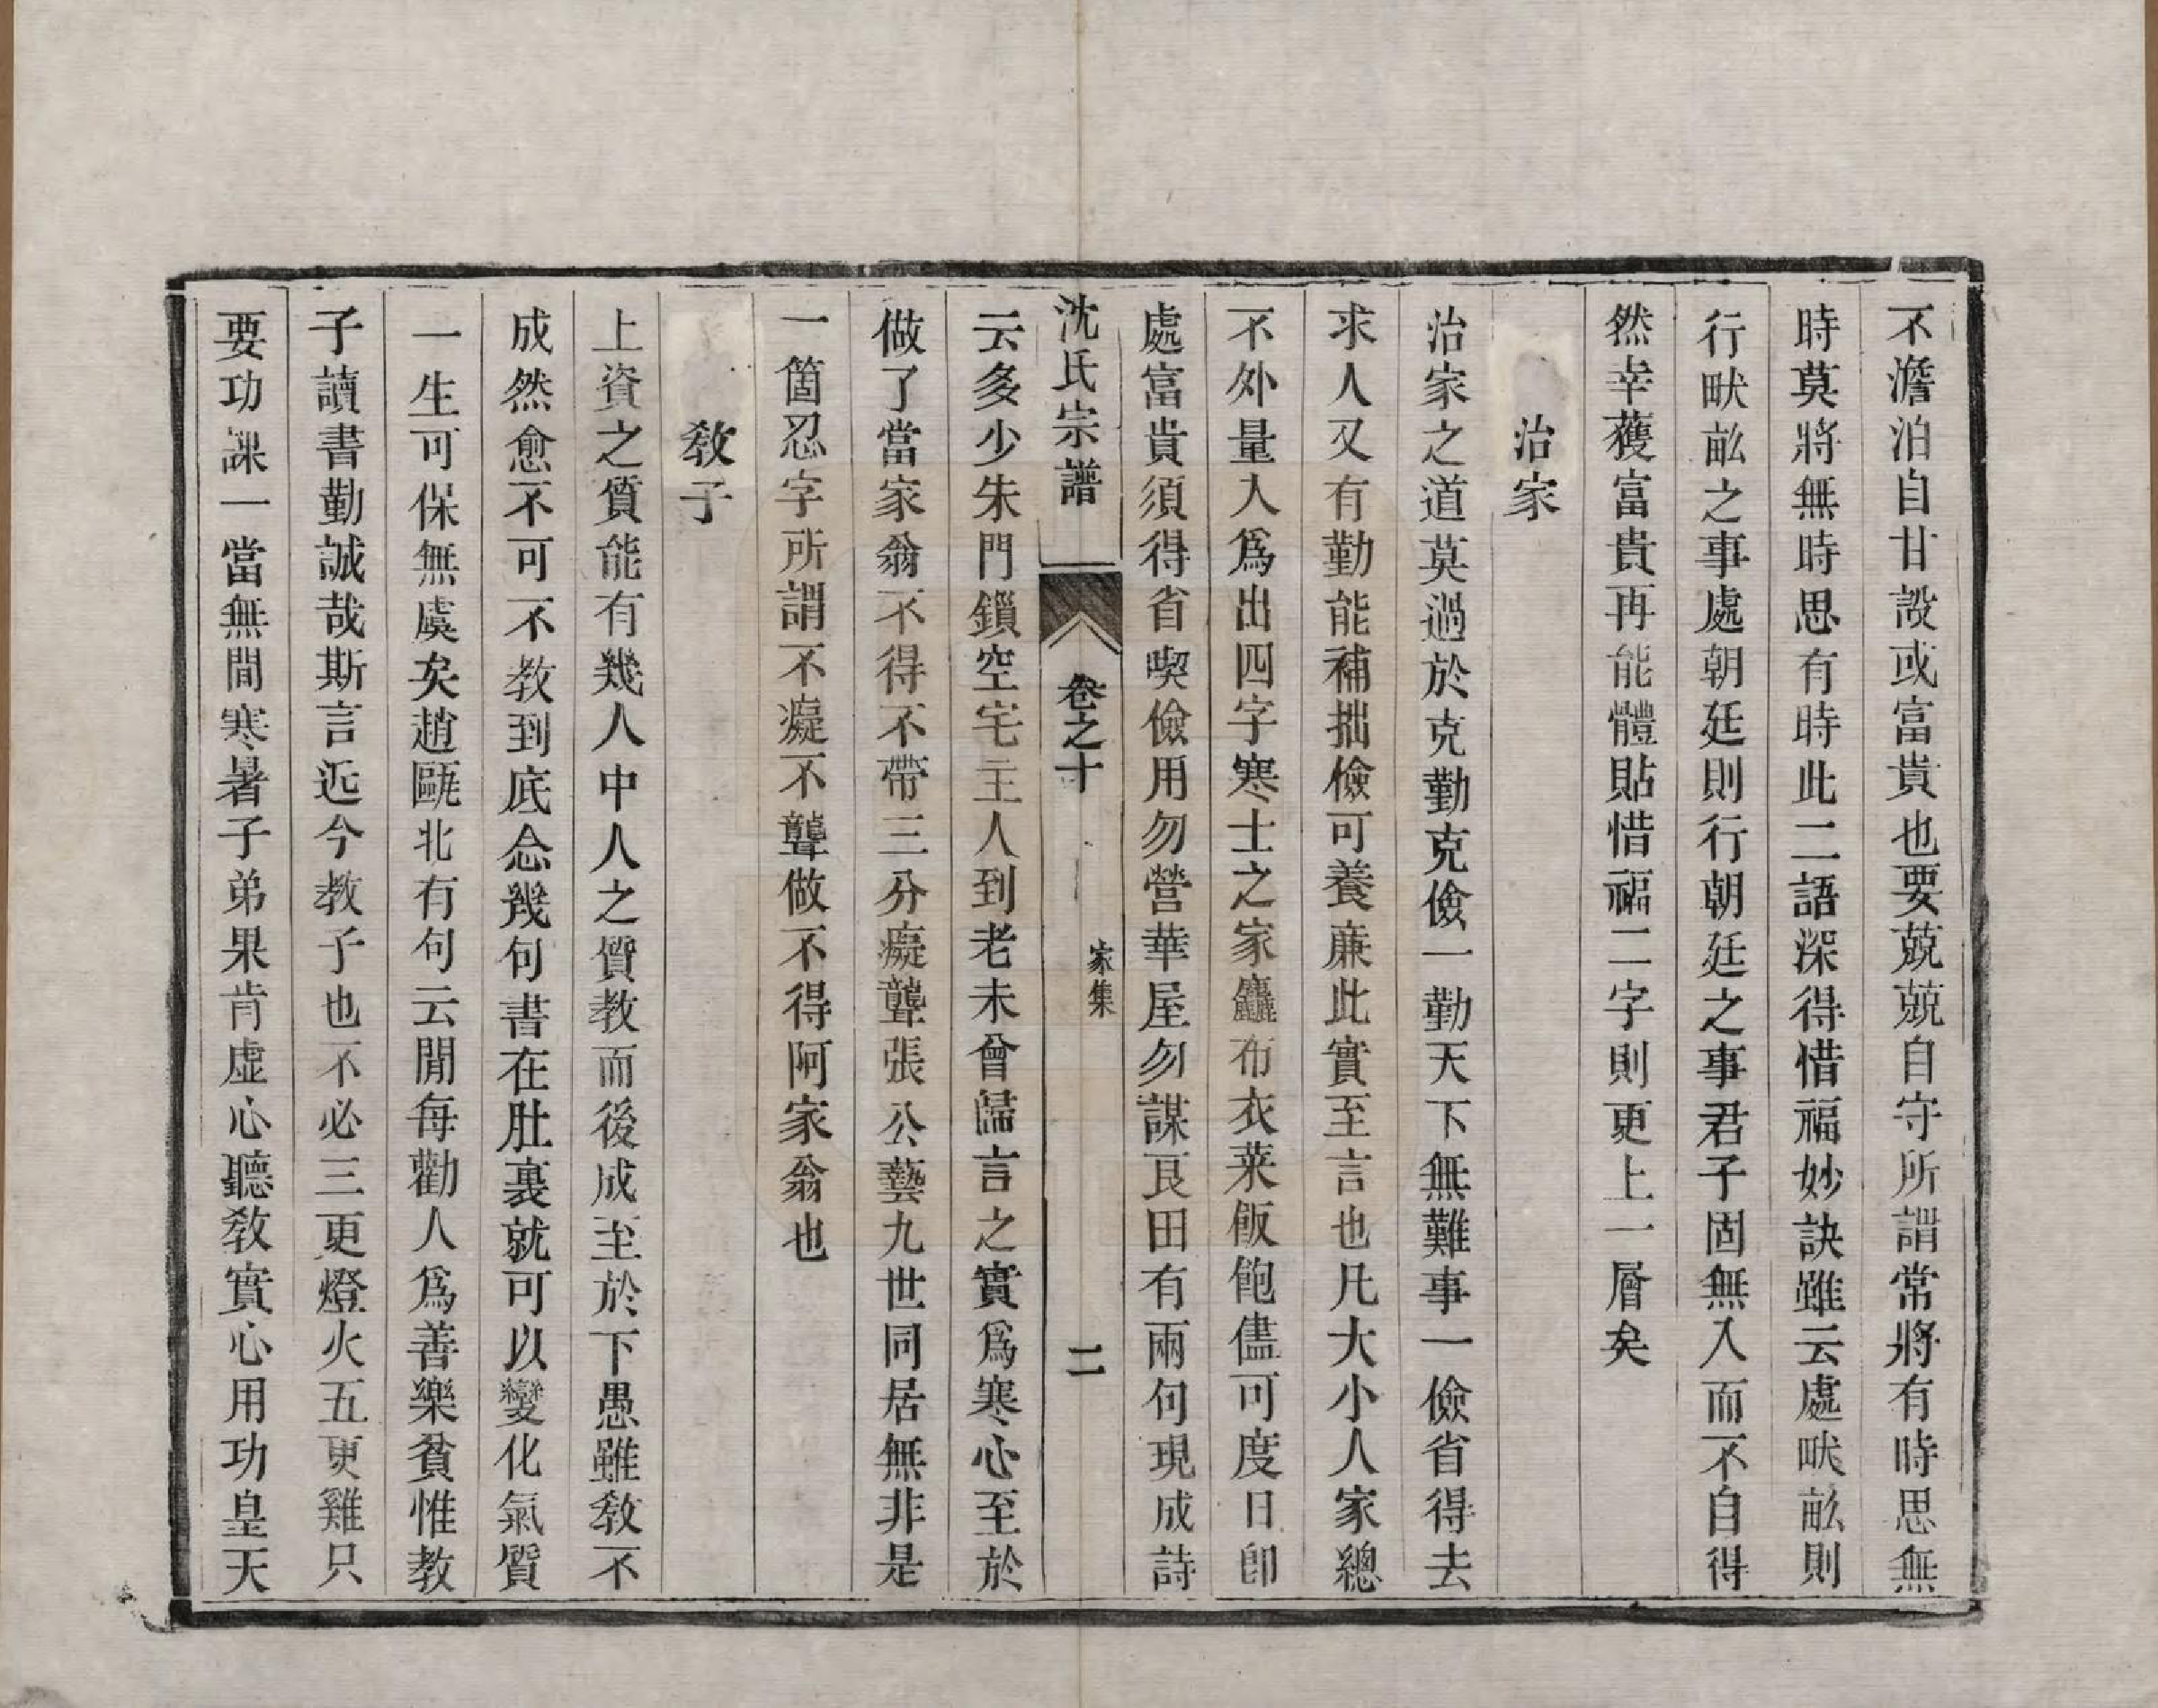 不澹泊自甘設或富貴也要兢兢自守所謂常將有時思無
時莫將無時思有時此二語深得惜福妙訣雖云處畎畝則
行畎畝之事處朝廷則行朝廷之事君子固無入而不自得
然幸獲富貴再能體貼惜福二字則更上一層矣
治家
治家之道莫過於克勤克儉一勤天下無難事一儉省得去
求人又有勤能補拙儉可養廉此實至言也凡大小人家總
不外量入爲出四字寒士之家麤布衣菜飯飽儘可度日卽
處富貴須得省喫儉用勿營華屋勿謀良田有兩句現成詩
沈氏宗譜
卷之十
家集
二
云多少朱門鎖空宅主人到老未曾歸言之實爲寒心至於
做了當家翁不得不帶三分癡聾張公藝九世同居無非是
一箇忍字所謂不癡不聾做不得阿家翁也
敎子
上資之質能有幾人中人之質教而後成至於下愚雖敎不
成然愈不可不教到底念幾句書在肚裏就可以變化氣質
一生可保無虞矣趙甌北有句云閒每勸人爲善樂貧惟教
子讀書勤誠哉斯言近今教子也不必三更燈火五更雞只
要功課一當無間寒暑子弟果肯虛心聽敎實心用功皇天